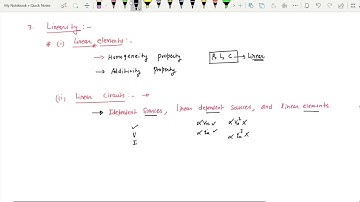 My Notebook • Quick Notes
7. Linearity :-
(i) Linear elements :-
→ Homogeneity property
→ Additivity property
R, L, C → Linear
(ii) Linear Circuits :- →
→ Idependent Sources, linear dependent sources, and linear elements
✓ V I
αVx ✓ αVx² X
αix ✓ αix² X